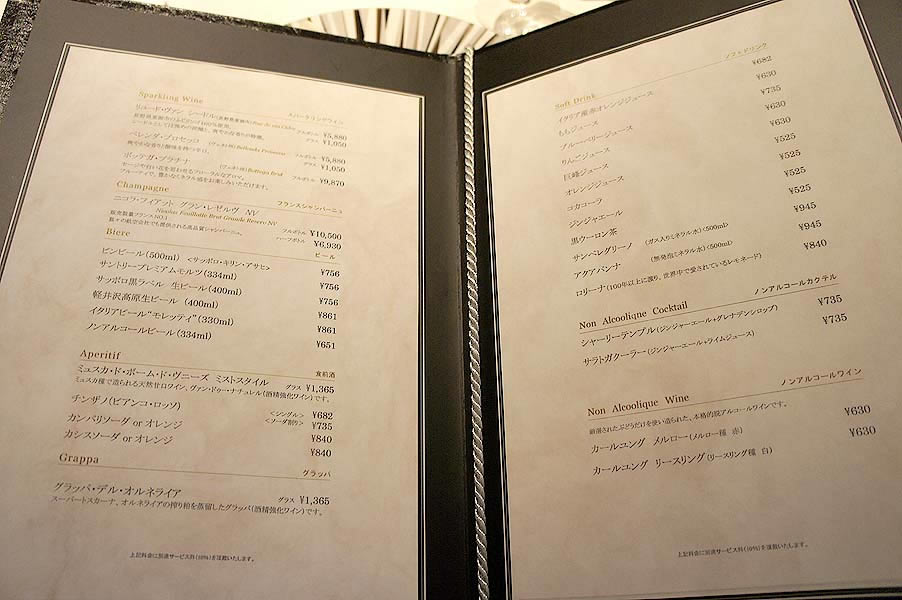 Sparkling Wine スパークリングワイン
リュード・ヴァン シードル
長野県東御市のふじりんご100%使用。
フルボトル ¥5,880
グラス ¥1,050
ベレンダ・プロセッコ (ヴェネト州) Bellenda Prosecco フルボトル ¥5,880
爽やかな香りと酸味を持つ辛口。 グラス ¥1,050
ボッテガ・プラチナ (ヴェネト州) Bottega Brut フルボトル ¥9,870
セージや白い花を思わせるフローラルなアロマ。
フルーティで、豊かなミネラル感をお楽しみいただけます。
Champagne フランスシャンパーニュ
ニコラ・フィアット グラン・レゼルヴ NV
Nicolas Feuillatte Brut Grande Reserv NV フルボトル ¥10,500
販売数量フランスNO.1 ハーフボトル ¥6,930
数々の航空会社でも提供される高品質シャンパーニュ。
Biere ビール
ビンビール(500ml) <サッポロ・キリン・アサヒ> ¥756
サントリープレミアムモルツ(334ml) ¥756
サッポロ黒ラベル 生ビール(400ml) ¥756
軽井沢高原生ビール (400ml) ¥861
イタリアビール“モレッティ”(330ml) ¥861
ノンアルコールビール(334ml) ¥651
Aperitif 食前酒
ミュスカ・ド・ボーム・ド・ヴニーズ ミストスタイル グラス ¥1,365
ミュスカ種で造られる天然甘口ワイン、ヴァン・ドゥー・ナチュレル(酒精強化ワイン)です。
チンザノ(ビアンコ・ロッソ) <シングル> ¥682
<ソーダ割り> ¥735
カンパリソーダ or オレンジ ¥840
カシスソーダ or オレンジ ¥840
Grappa グラッパ
グラッパ・デル・オルネライア グラス ¥1,365
スーパートスカーナ、オルネライアの搾り粕を蒸留したグラッパ(酒精強化ワイン)です。
上記料金に別途サービス料(10%)を頂戴いたします。
Soft Drink ソフトドリンク
イタリア産赤オレンジジュース ¥682
ももジュース ¥630
ブルーベリージュース ¥735
りんごジュース ¥630
巨峰ジュース ¥630
オレンジジュース ¥525
コカコーラ ¥525
ジンジャエール ¥525
黒ウーロン茶 ¥525
サンペレグリーノ (ガス入りミネラル水)<500ml> ¥945
アクアパンナ (無発泡ミネラル水)<500ml> ¥945
ロリーナ(100年以上に渡り、世界中で愛されているレモネード) ¥840
Non Alcoolique Cocktail ノンアルコールカクテル
シャーリーテンプル(ジンジャーエール+グレナデンシロップ) ¥735
サラトガクーラー(ジンジャーエール+ライムジュース) ¥735
Non Alcoolique Wine ノンアルコールワイン
厳選されたぶどうだけを使い造られた、本格的脱アルコールワインです。
カールユング メルロー(メルロー種 赤) ¥630
カールユング リースリング(リースリング種 白) ¥630
上記料金に別途サービス料(10%)を頂戴いたします。